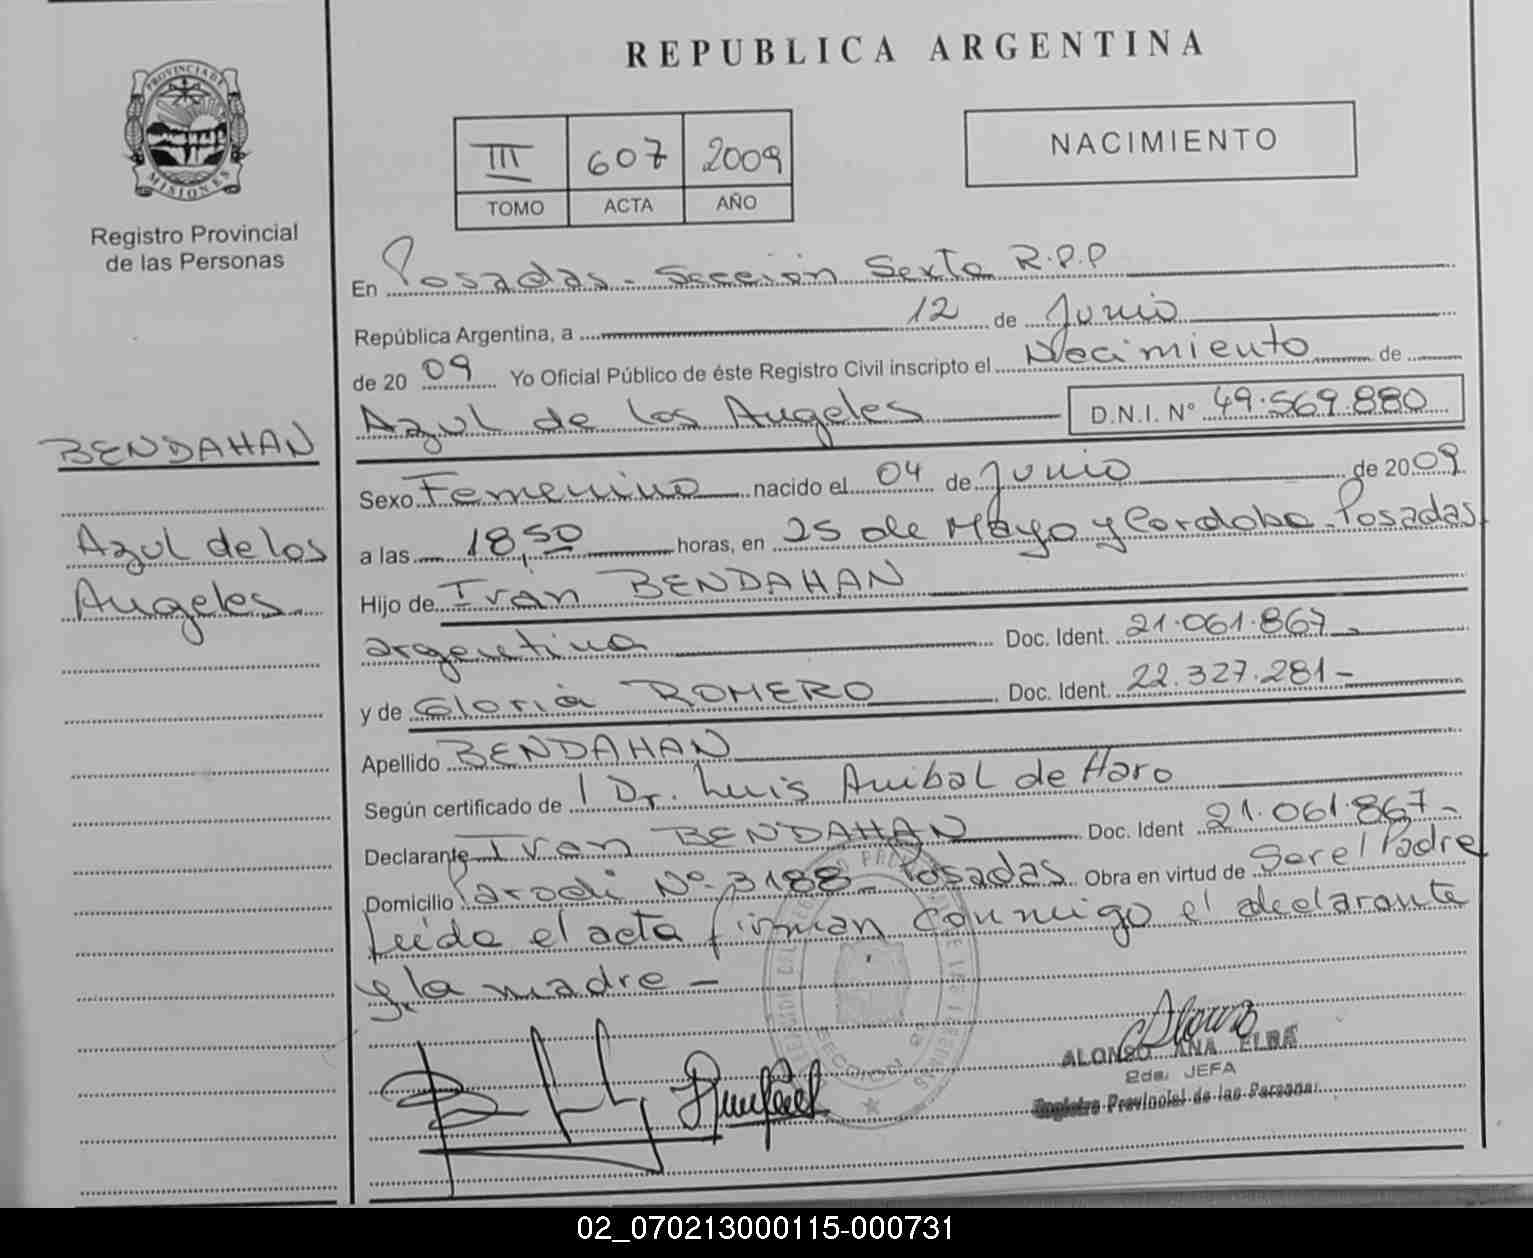 PROVINCIA DE
MISIONES
Registro Provincial
de las Personas
BENDAHAN
Azul de los
Angeles
REPUBLICA ARGENTINA
III 607 2009
TOMO ACTA AÑO
NACIMIENTO
En Posadas - Sección Sexta R.P.P
República Argentina, a 12 de Junio
de 2009 Yo Oficial Público de éste Registro Civil inscripto el Nacimiento de
Azul de los Angeles D.N.I. Nº 49.569.880
Sexo Femenino nacido el 04 de Junio de 2009
a las 18,50 horas, en 25 de Mayo y Cordoba - Posadas
Hijo de Iván BENDAHAN
argentina Doc. Ident. 21.061.867 -
y de Gloria ROMERO Doc. Ident. 22.327.281 -
Apellido BENDAHAN
Según certificado de l Dr. Luis Anibal de Haro
Declarante Ivan BENDAHAN Doc. Ident 21.061.867 -
Domicilio Parodi Nº 3188 - Posadas Obra en virtud de Ser el Padre
Leída el acta firman conmigo el declarante
y la madre -
SECCION 6a
ALONSO ANA ELBA
2da. JEFA
Registro Provincial de las Personas
02_070213000115-000731